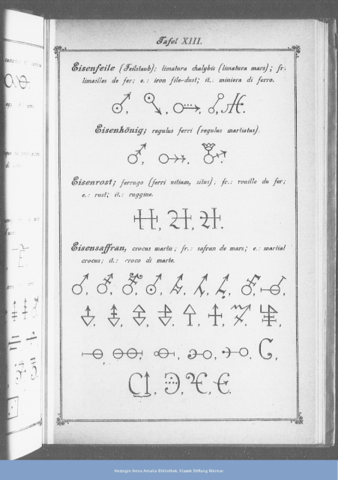 Tafel XIII.
Eisenfeile (Feilstaub); limatura chalybis (limatura mars); fr.
limailles de fer; e.: iron file-dust; it.: miniera di ferro.
Eisenkönig; regulus ferri (regulus martiatus).
Eisenrost; ferrugo (ferri vitium, situs). fr.: rouille de fer;
e.: rust; it.: ruggine.
Eisensaffran, crocus martis; fr.: safran de mars; e.: martial
crocus; it.: croco di marte.
Herzogin Anna Amalia Bibliothek, Klassik Stiftung Weimar